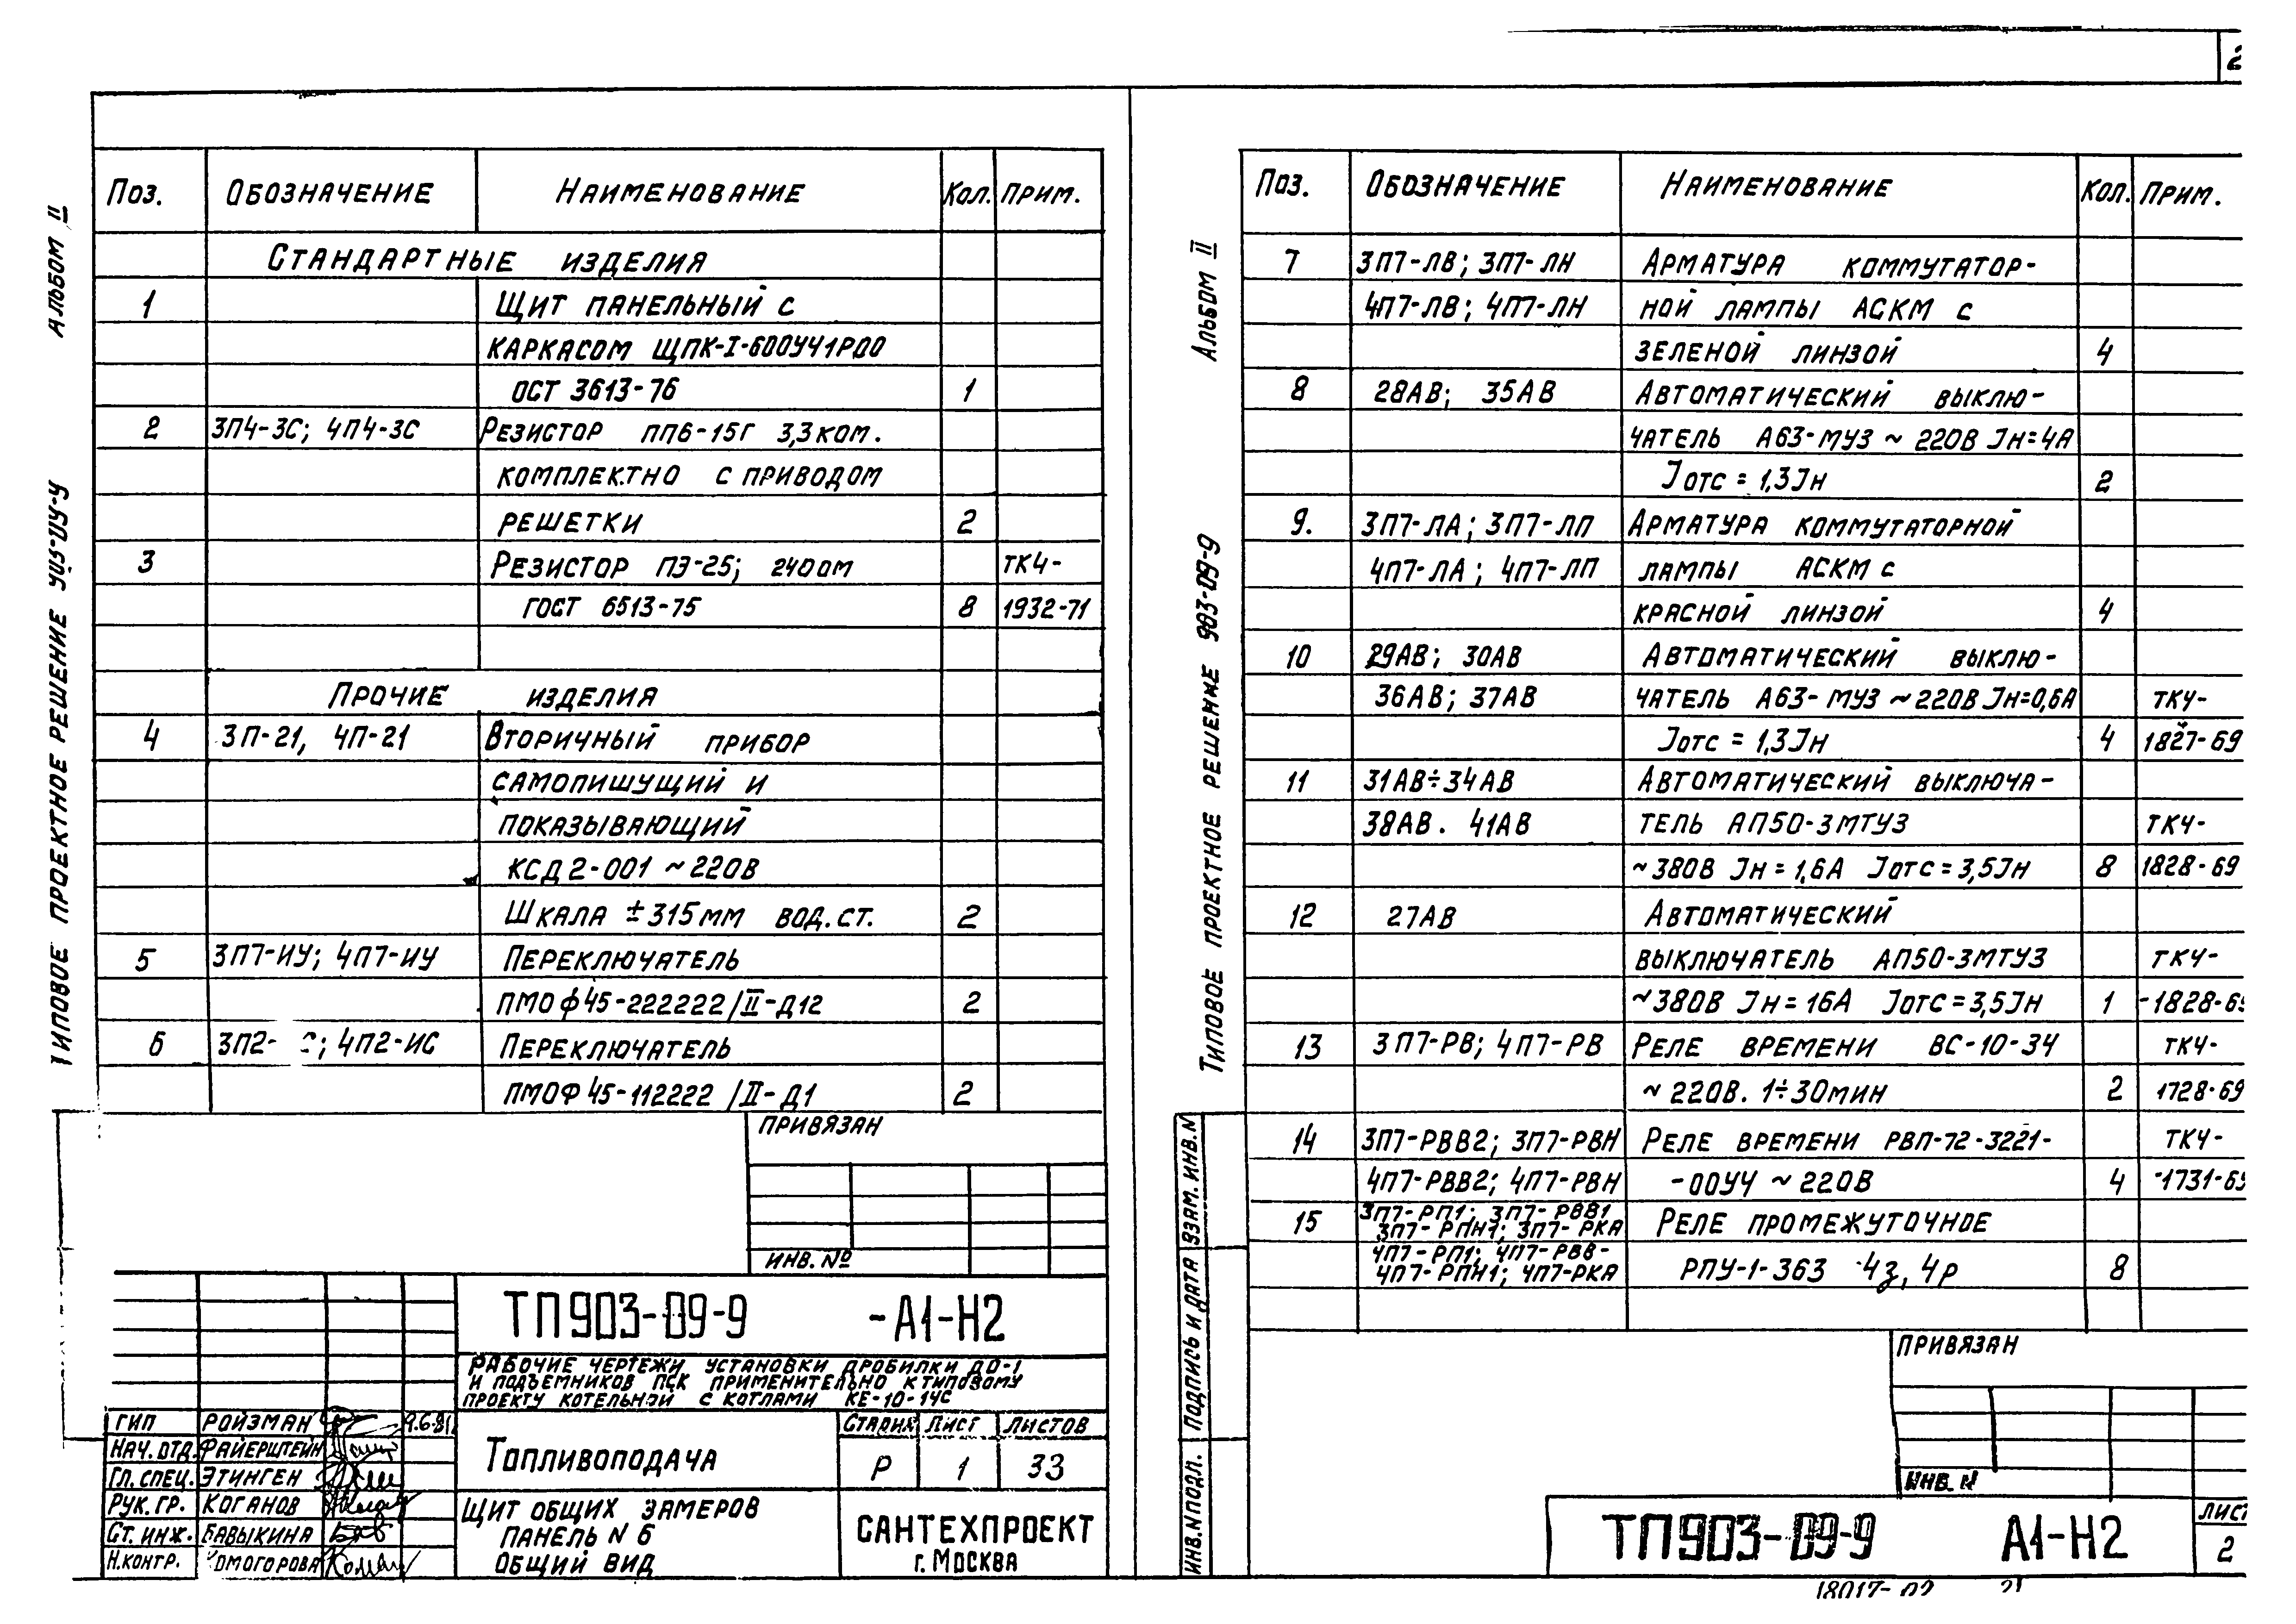 2
АЛЬБОМ II
ТИПОВОЕ ПРОЕКТНОЕ РЕШЕНИЕ
ПОЗ. ОБОЗНАЧЕНИЕ НАИМЕНОВАНИЕ КОЛ. ПРИМ.
СТАНДАРТНЫЕ ИЗДЕЛИЯ
1 ЩИТ ПАНЕЛЬНЫЙ С
КАРКАСОМ ЩПК-I-600УЧ1Р00
ОСТ 3613-76 1
2 3П4-3С; 4П4-3С РЕЗИСТОР ПП6-15Г 3,3 КОМ.
КОМПЛЕКТНО С ПРИВОДОМ
РЕШЕТКИ 2
3 РЕЗИСТОР ПЭ-25; 240 ОМ ТКЧ-
ГОСТ 6513-75 8 1932-71
ПРОЧИЕ ИЗДЕЛИЯ
4 3П-21, 4П-21 ВТОРИЧНЫЙ ПРИБОР
САМОПИШУЩИЙ И
ПОКАЗЫВАЮЩИЙ
КСД2-001 ~220В
ШКАЛА ±315ММ ВОД. СТ. 2
5 3П7-ИУ; 4П7-ИУ ПЕРЕКЛЮЧАТЕЛЬ
ПМОФ45-222222/II-Д12 2
6 3П2- С; 4П2-ИС ПЕРЕКЛЮЧАТЕЛЬ
ПМОФ45-112222/II-Д1 2
ПРИВЯЗАН
ИНВ. №
ТП903-09-9 -А1-Н2
РАБОЧИЕ ЧЕРТЕЖИ УСТАНОВКИ ДРОБИЛКИ ДО-1
И ПОДЪЕМНИКОВ ПСК ПРИМЕНИТЕЛЬНО К ТИПОВОМУ
ПРОЕКТУ КОТЕЛЬНОЙ С КОТЛАМИ КЕ-10-14С
ГИП РОЙЗМАН 9.6.81
НАЧ. ОТД. ФАЙЕРШТЕЙН
ГЛ. СПЕЦ. ЭТИНГЕН
РУК. ГР. КОГАНОВ
СТ. ИНЖ. БАВЫКИНА
Н.КОНТР. КОМОГОРОВА
ТОПЛИВОПОДАЧА
СТАДИЯ ЛИСТ ЛИСТОВ
Р 1 33
ЩИТ ОБЩИХ ЗАМЕРОВ
ПАНЕЛЬ N 6
ОБЩИЙ ВИД
САНТЕХПРОЕКТ
Г. МОСКВА
АЛЬБОМ II
ТИПОВОЕ ПРОЕКТНОЕ РЕШЕНИЕ 903-09-9
ПОЗ. ОБОЗНАЧЕНИЕ НАИМЕНОВАНИЕ КОЛ. ПРИМ.
7 3П7-ЛВ; 3П7-ЛН АРМАТУРА КОММУТАТОР-
4П7-ЛВ; 4П7-ЛН НОЙ ЛАМПЫ АСКМ С
ЗЕЛЕНОЙ ЛИНЗОЙ 4
8 28АВ; 35АВ АВТОМАТИЧЕСКИЙ ВЫКЛЮ-
ЧАТЕЛЬ А63-МУЗ ~220В Jн=4А
Jотс = 1,3Jн 2
9. 3П7-ЛА; 3П7-ЛП АРМАТУРА КОММУТАТОРНОЙ
4П7-ЛА; 4П7-ЛП ЛАМПЫ АСКМ С
КРАСНОЙ ЛИНЗОЙ 4
10 29АВ; 30АВ АВТОМАТИЧЕСКИЙ ВЫКЛЮ-
36АВ; 37АВ ЧАТЕЛЬ А63-МУЗ ~220В Jн=0,6А ТКЧ-
Jотс = 1,3Jн 4 1827-69
11 31АВ÷34АВ АВТОМАТИЧЕСКИЙ ВЫКЛЮЧА-
38АВ. 41АВ ТЕЛЬ АП50-3МТУЗ ТКЧ-
~380В Jн=1,6А Jотс=3,5Jн 8 1828-69
12 27АВ АВТОМАТИЧЕСКИЙ
ВЫКЛЮЧАТЕЛЬ АП50-3МТУЗ ТКЧ-
~380В Jн=16А Jотс=3,5Jн 1 -1828-69
13 3П7-РВ; 4П7-РВ РЕЛЕ ВРЕМЕНИ ВС-10-34 ТКЧ-
~220В. 1÷30МИН 2 1728-69
14 3П7-РВВ2; 3П7-РВН РЕЛЕ ВРЕМЕНИ РВП-72-3221- ТКЧ-
4П7-РВВ2; 4П7-РВН -00УЧ ~220В 4 -1731-69
15 3П7-РП1; 3П7-РВВ1 РЕЛЕ ПРОМЕЖУТОЧНОЕ
3П7-РПН1; 3П7-РКА
4П7-РП1; 4П7-РВВ-
4П7-РПН1; 4П7-РКА РПУ-1-363 4з, 4р 8
ВЗАМ. ИНВ. N
ПОДПИСЬ И ДАТА
ИНВ. N ПОДЛ.
ПРИВЯЗАН
ИНВ. N
ТП903-09-9 А1-Н2
ЛИСТ
2
18017-02 21